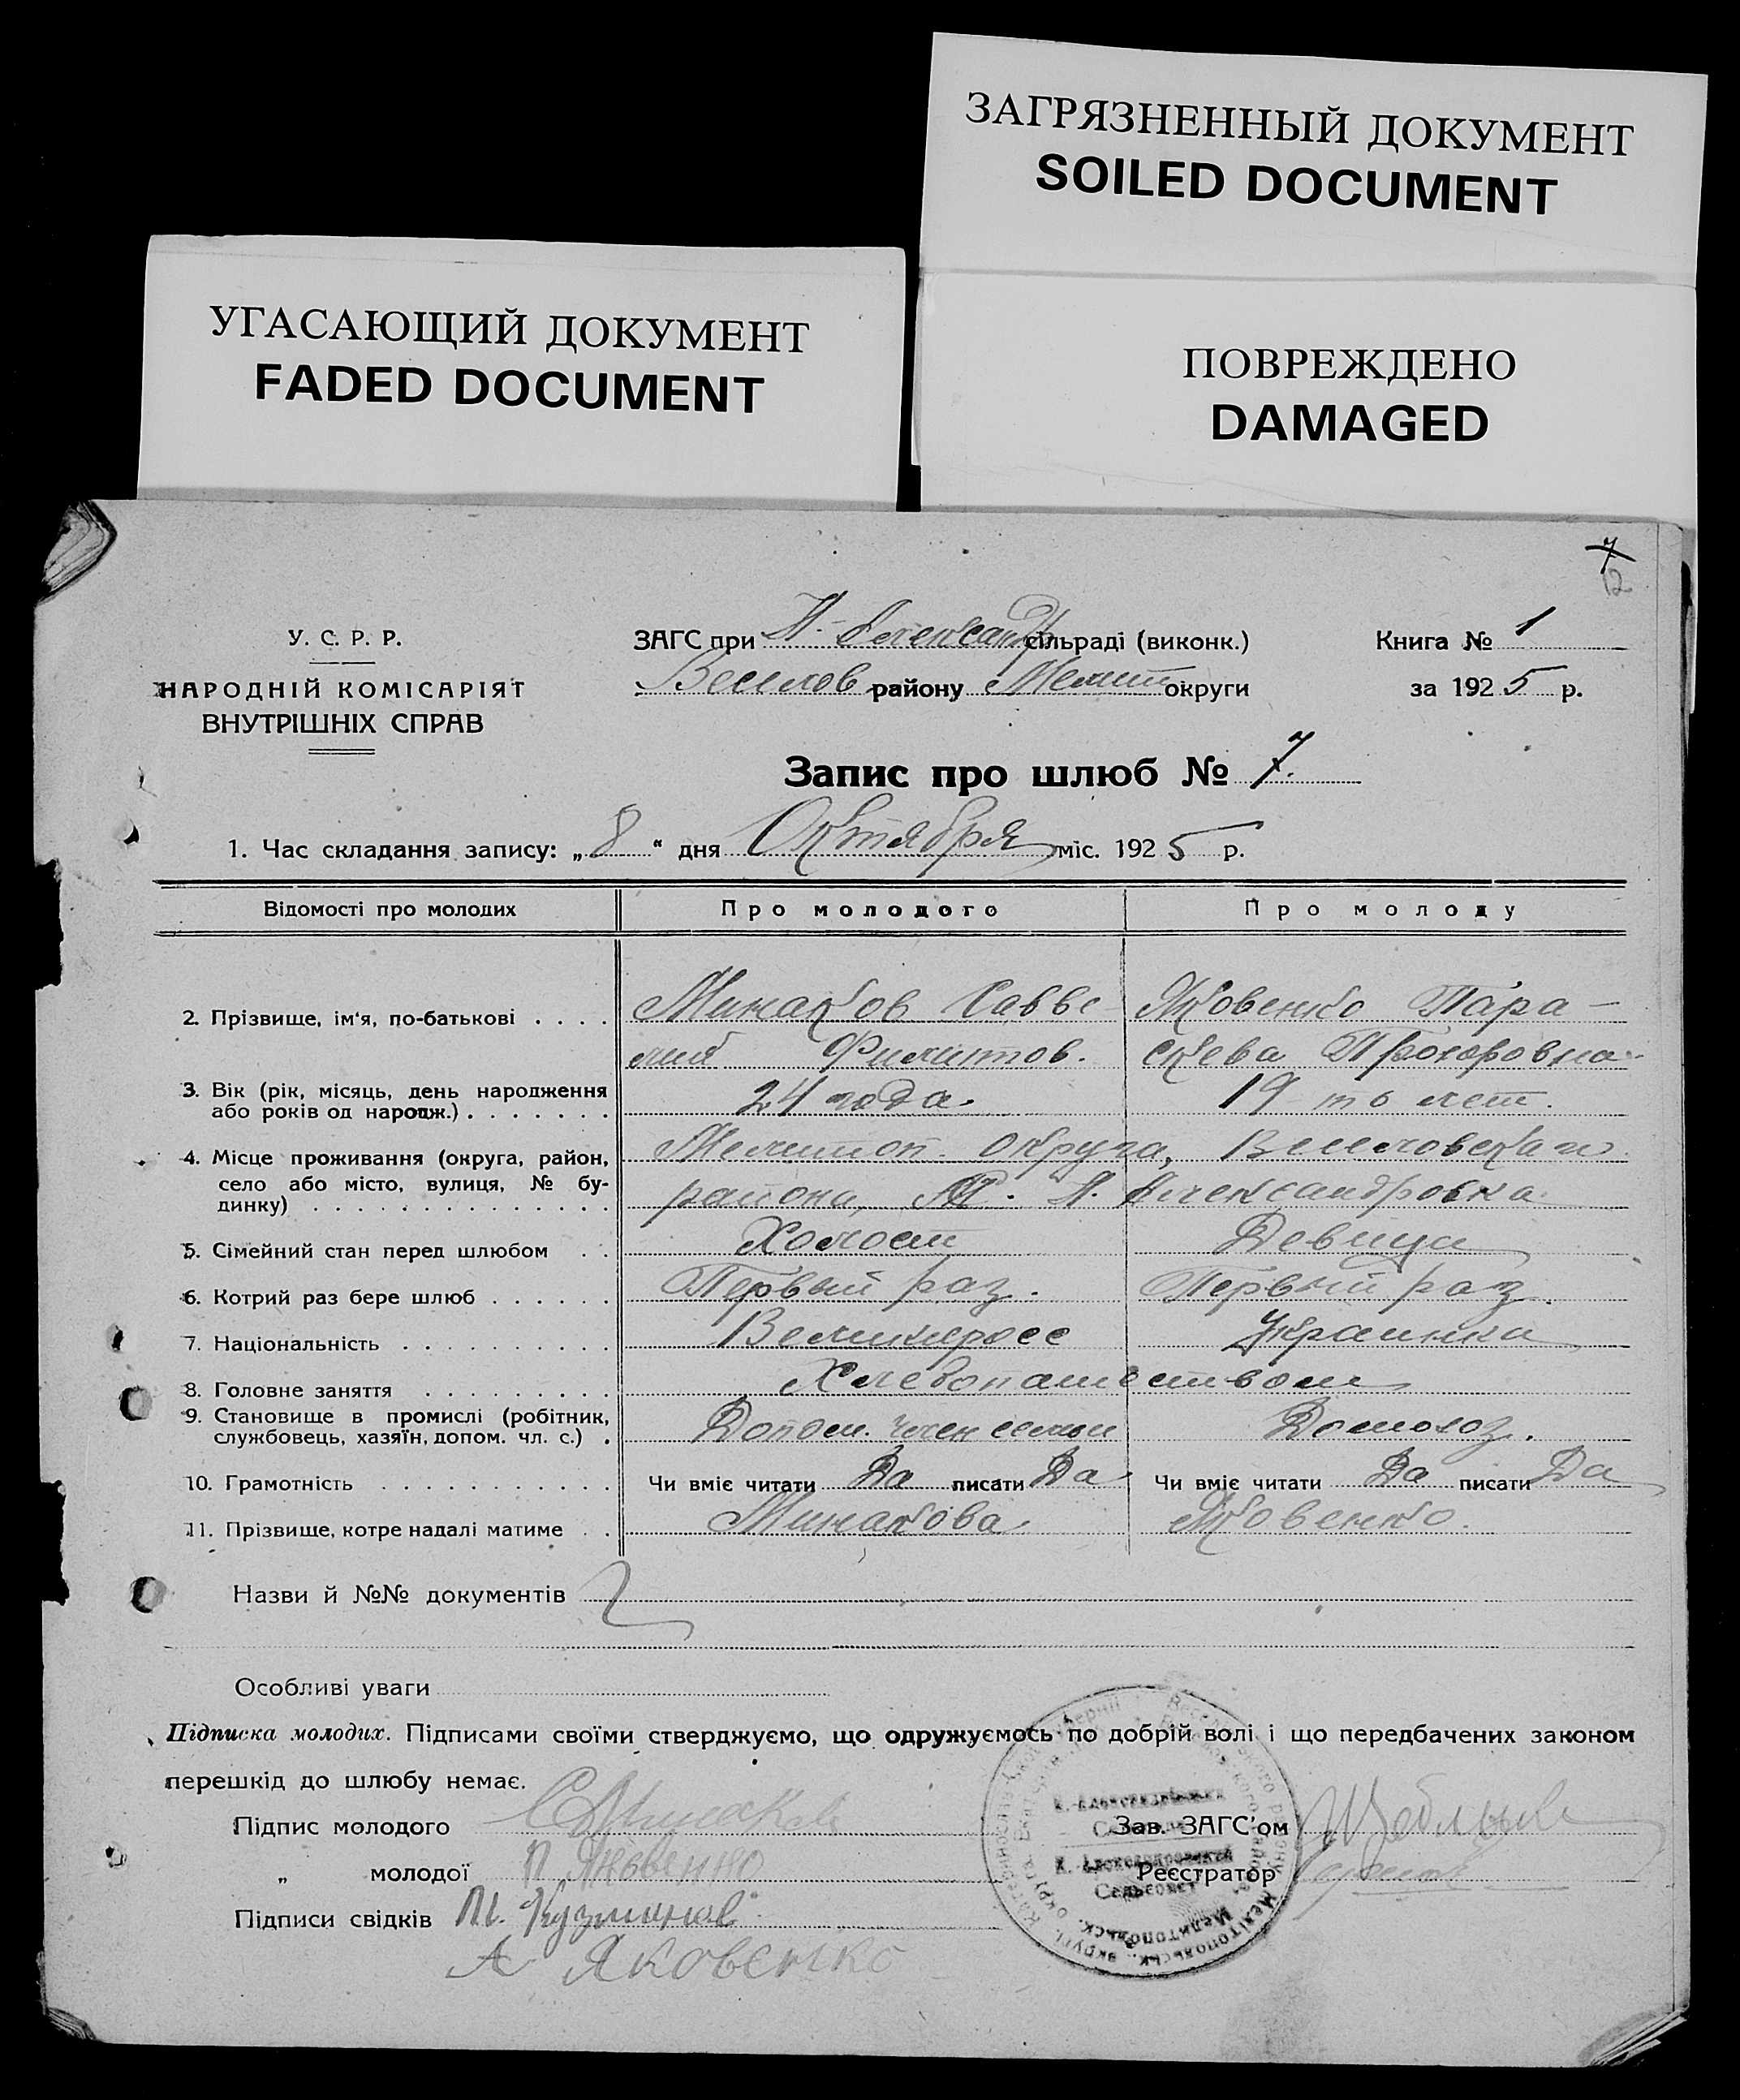 ЗАГРЯЗНЕННЫЙ ДОКУМЕНТ
SOILED DOCUMENT
УГАСАЮЩИЙ ДОКУМЕНТ
FADED DOCUMENT
ПОВРЕЖДЕНО
DAMAGED
7
12
У. С. Р. Р.
НАРОДНІЙ КОМІСАРІЯТ
ВНУТРІШНІХ СПРАВ
ЗАГС при Н-Александр сільраді (виконк.)
Веселов району Мелит округи
Книга № 1
за 1925 р.
Запис про шлюб № 7.
1. Час складання запису: „8“ дня Октября міс. 1925 р.
Відомості про молодих Про молодого Про молоду
2. Прізвище, ім'я, по-батькові . . . . Минаков Савве Яковенко Пара-
лий Филипов. скева Прохоровна
3. Вік (рік, місяць, день народження
або років од народж.) . . . . . . . 24 года. 19 ть лет.
4. Місце проживання (округа, район, Мелитоп. округа, Веселовскаго
село або місто, вулиця, № бу-
динку) . . . . . . . . . . . . . . района, Н. Александровка
5. Сімейний стан перед шлюбом . . Холост Девица
6. Котрий раз бере шлюб . . . . . . Первый раз. Первый раз.
7. Національність . . . . . . . . . . Великоросс Украинка
8. Головне заняття . . . . . . . . . Хлебопашеством
9. Становище в промислі (робітник,
службовець, хазяїн, допом. чл. с.) . Допом. член семьи Домохоз.
10. Грамотність . . . . . . . . . . . Чи вміє читати Да писати Да Чи вміє читати Да писати Да
11. Прізвище, котре надалі матиме . . Минакова Яковенко.
Назви й №№ документів
Особливі уваги
Підписка молодих. Підписами своїми стверджуємо, що одружуємось по добрій волі і що передбачених законом
перешкід до шлюбу немає.
Підпис молодого С Минаков
„ молодої П Яковенко
Підписи свідків М. Кузминов
А Яковенко
Зав. ЗАГС'ом
Реєстратор
Н.-Александровский
Сельсовет